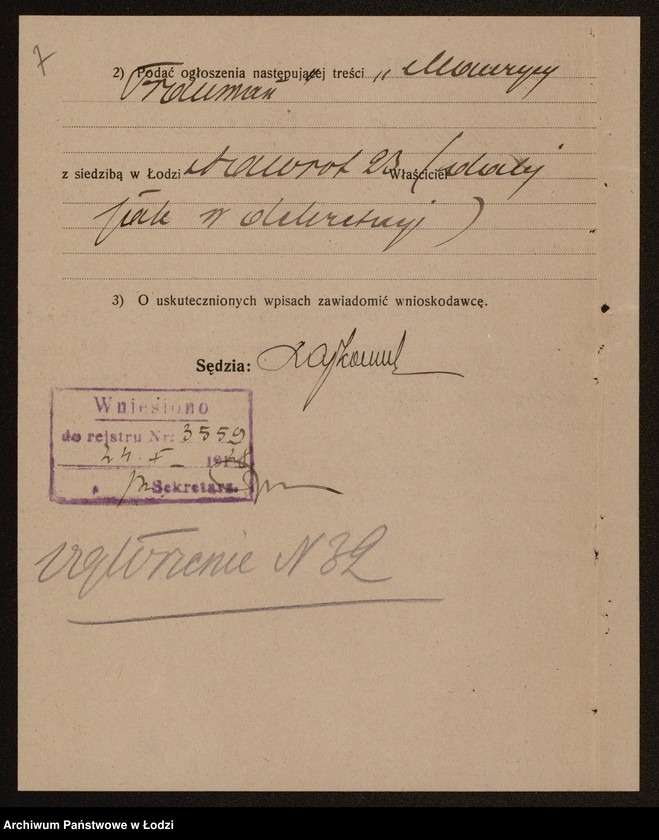 7
2) Podać ogłoszenia następującej treści „ Maurycy
Frauman"
z siedzibą w Łodzi Nawrot 23 Właściciel (dalej
jak w deklaracji)
3) O uskutecznionych wpisach zawiadomić wnioskodawcę.
Sędzia:
Wniesiono
do rejstru Nr: 3559
24. X 19
Sekretarz.
Ogłoszenie N 32
Archiwum Państwowe w Łodzi